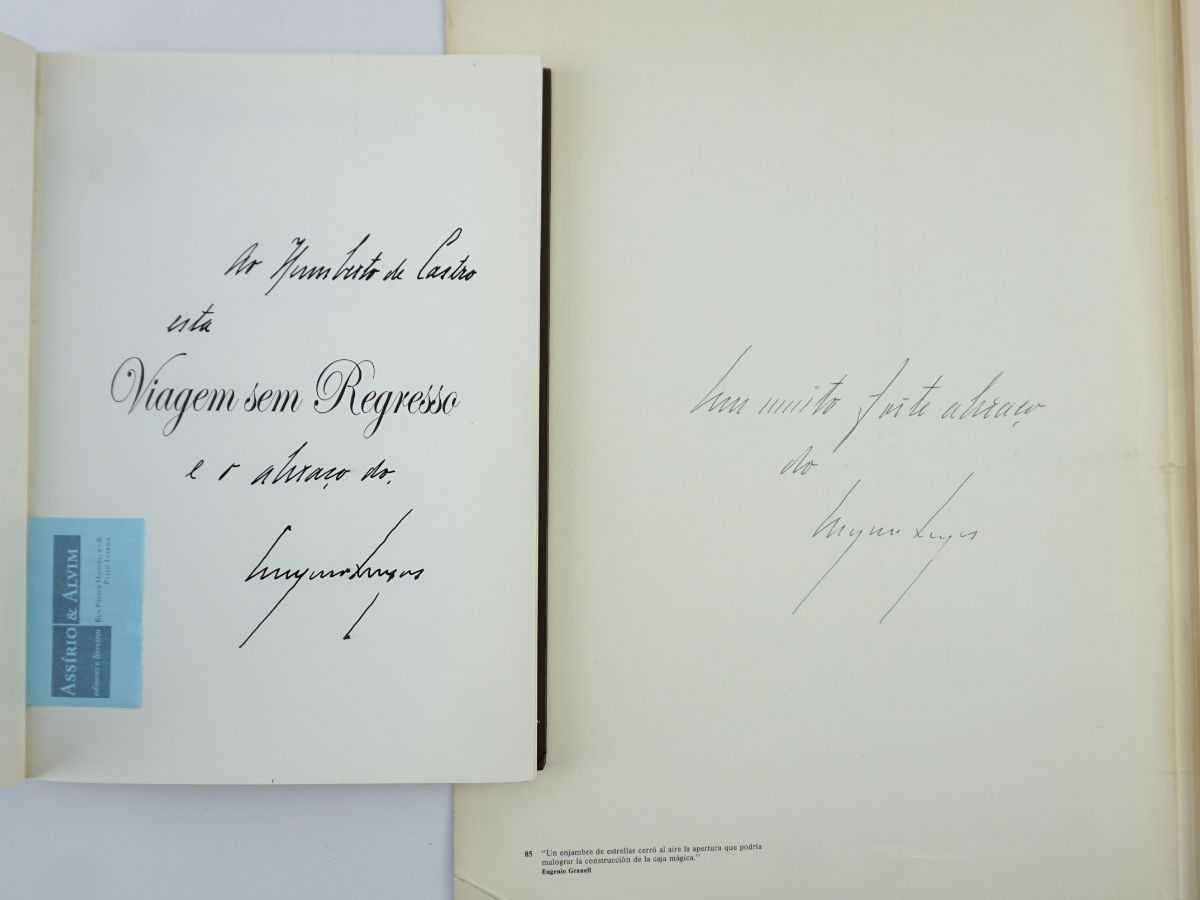 Ao Humberto de Castro
esta
Viagem sem Regresso
e o abraço do,
ASSÍRIO & ALVIM
editores e livreiros
Um muito forte abraço
do
85 "Un enjambre de estrellas cerró al aire la apertura que podría
malograr la construcción de la caja mágica."
Eugenio Granell